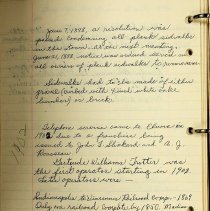 June 7, 1898, a resolution was
passed condemning all plank sidewalks
in the town. At the next meeting,
June 21, 1898, notice was ordered served on
all owners of plank sidewalks to remove
Sidewalks had to be made of either
gravel (curbed with 2 inch white oak
lumber) or brick.
Telephone service came to in
1902 due to a franchise being
issued to John T. and A. J.
Gertrude Williams Tutter was
the first operator starting in 1902.
Later operators were
Indianapolis & Vincennes Railroad Comp. - 1869
railroad complete by 1850. Madison
1902